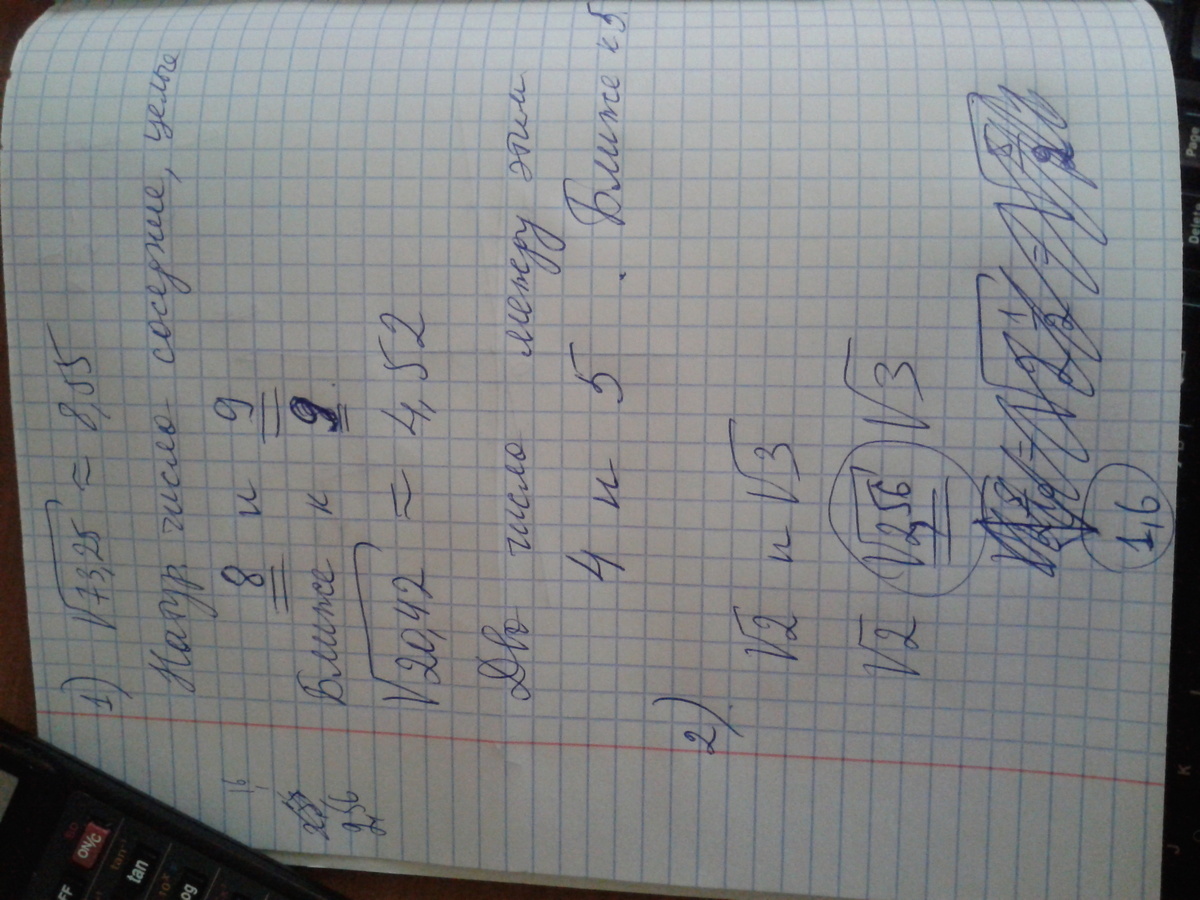 1) √73,25 ≈ 8,55
Натур. число соседние, целые
8 и 9
Ближе к 9.
√20,42 ≈ 4,52
Два число между этим
4 и 5. Ближе к 5
2)
√2 и √3
√2 √2,56 √3
1,6
1,6
2,56
ON/C
tan
tan⁻¹
K
J